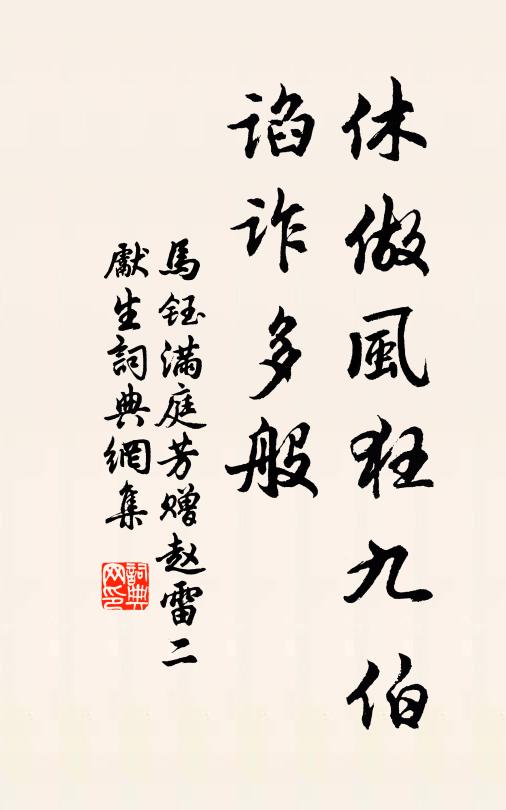 休做風狂九伯
諂诈多般
馬鈺滿庭芳赠赵雷二
獻生詞典網集
詞典
网印